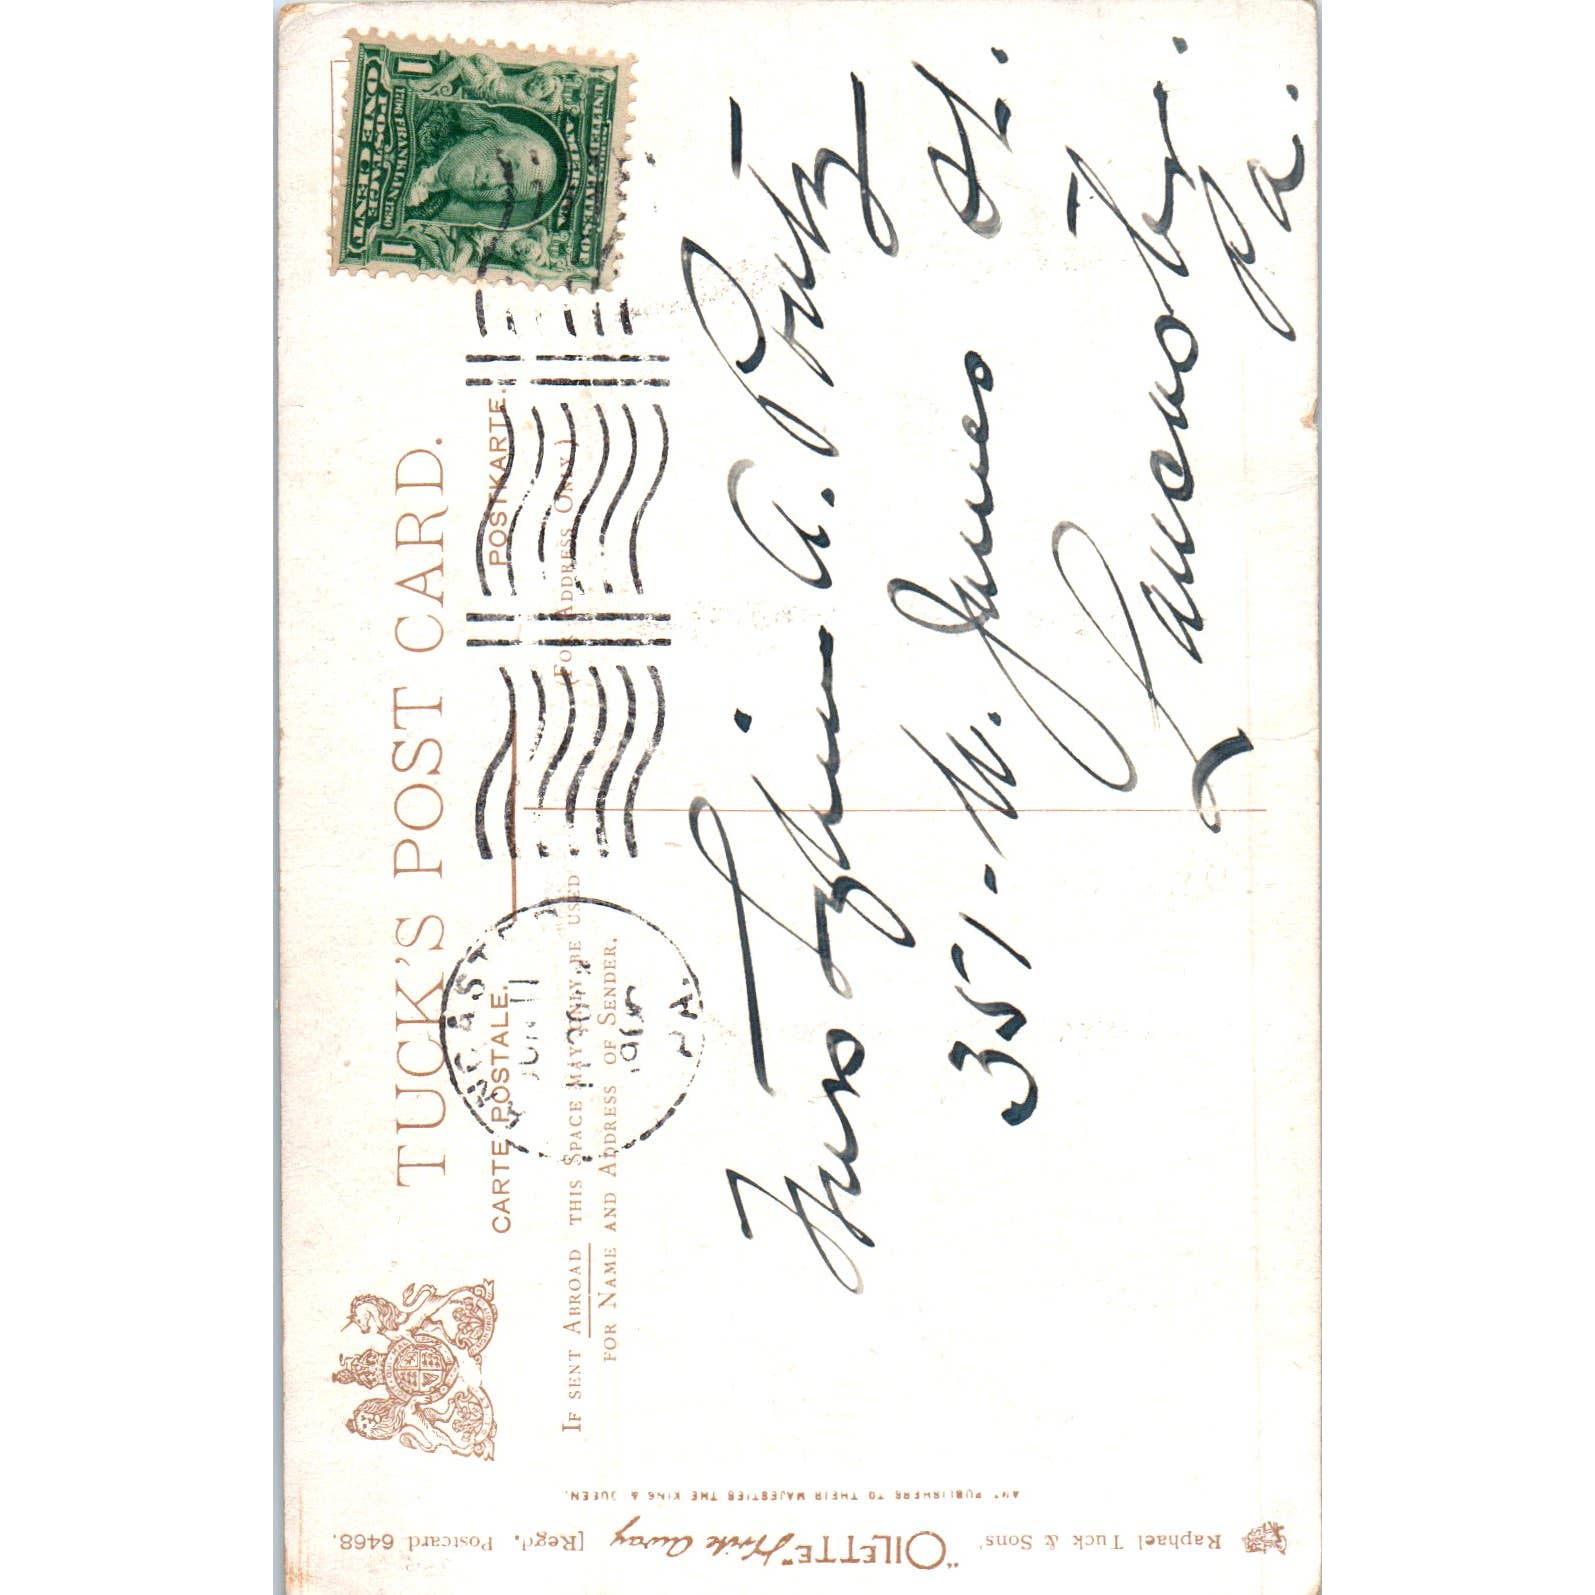 TUCK'S POST CARD.
CARTE POSTALE. POSTKARTE.
IF SENT ABROAD THIS SPACE MAY ONLY BE USED (FOR ADDRESS ONLY.)
FOR NAME AND ADDRESS OF SENDER.
UNITED STATES OF
AMERICA
1706 FRANKLIN 1790
POSTAGE
1 ONE CENT 1
JUN 11
PA.
Miss A. Poutz
351-W. James St.
Lancaster.
Pa.
Raphael Tuck & Sons' "OILETTE" Write Away [Regd. Postcard 6468.
PUBLISHERS TO THEIR MAJESTIES THE KING & QUEEN.